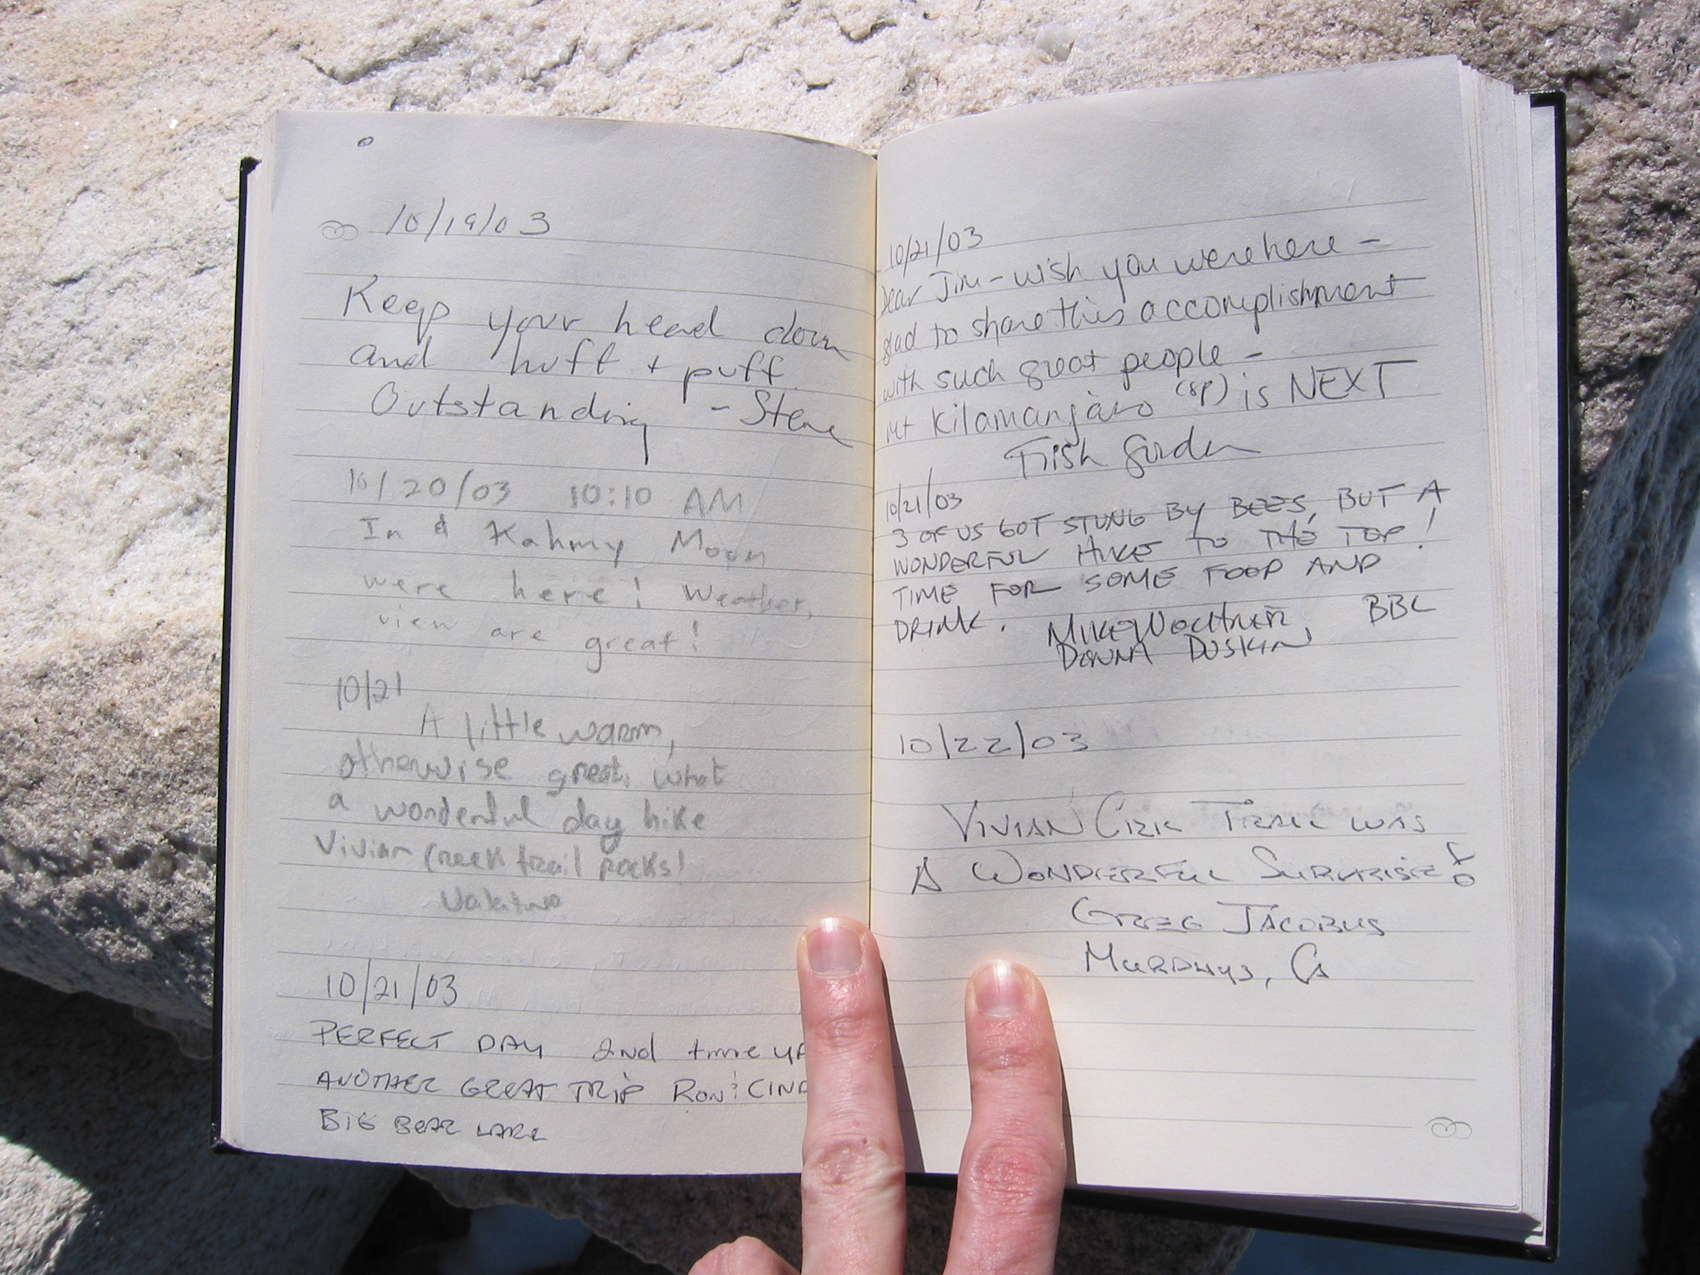 10/19/03
Keep your head down
and huff + puff.
Outstanding - Steve
10/20/03 10:10 AM
In & Kahmy Moon
were here! Weather,
view are great!
10/21
A little warm,
otherwise great. what
a wonderful day hike
Vivian Creek trail rocks!
10/21/03
PERFECT DAY 2nd time UP
ANOTHER GREAT TRIP RON & CIND
BIG BEAR LAKE
10/21/03
Dear Jim - wish you were here -
glad to share this accomplishment
with such great people -
Mt Kilamanjaro (sp) is NEXT
Trish
10/21/03
3 OF US GOT STUNG BY BEES, BUT A
WONDERFUL HIKE TO THE TOP!
TIME FOR SOME FOOD AND
DRINK. MIKE WOCHNER, BBL
DONNA DUSKIN
10/22/03
VIVIAN CREEK TRAIL WAS
A WONDERFUL SURPRISE!
GREG JACOBUS
MURPHYS, CA